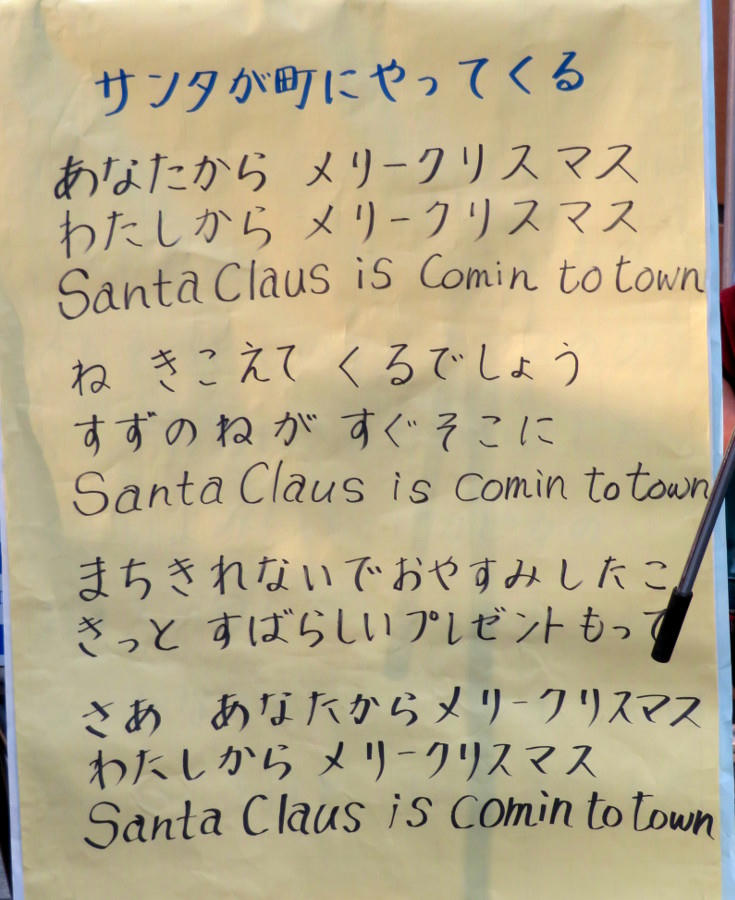 サンタが町にやってくる
あなたから メリークリスマス
わたしから メリークリスマス
Santa Claus is Comin to town
ね きこえて くるでしょう
すずのねが すぐそこに
Santa Claus is comin to town
まちきれないでおやすみしたこ
きっと すばらしいプレゼントもって
さあ あなたからメリークリスマス
わたしから メリークリスマス
Santa Claus is comin to town